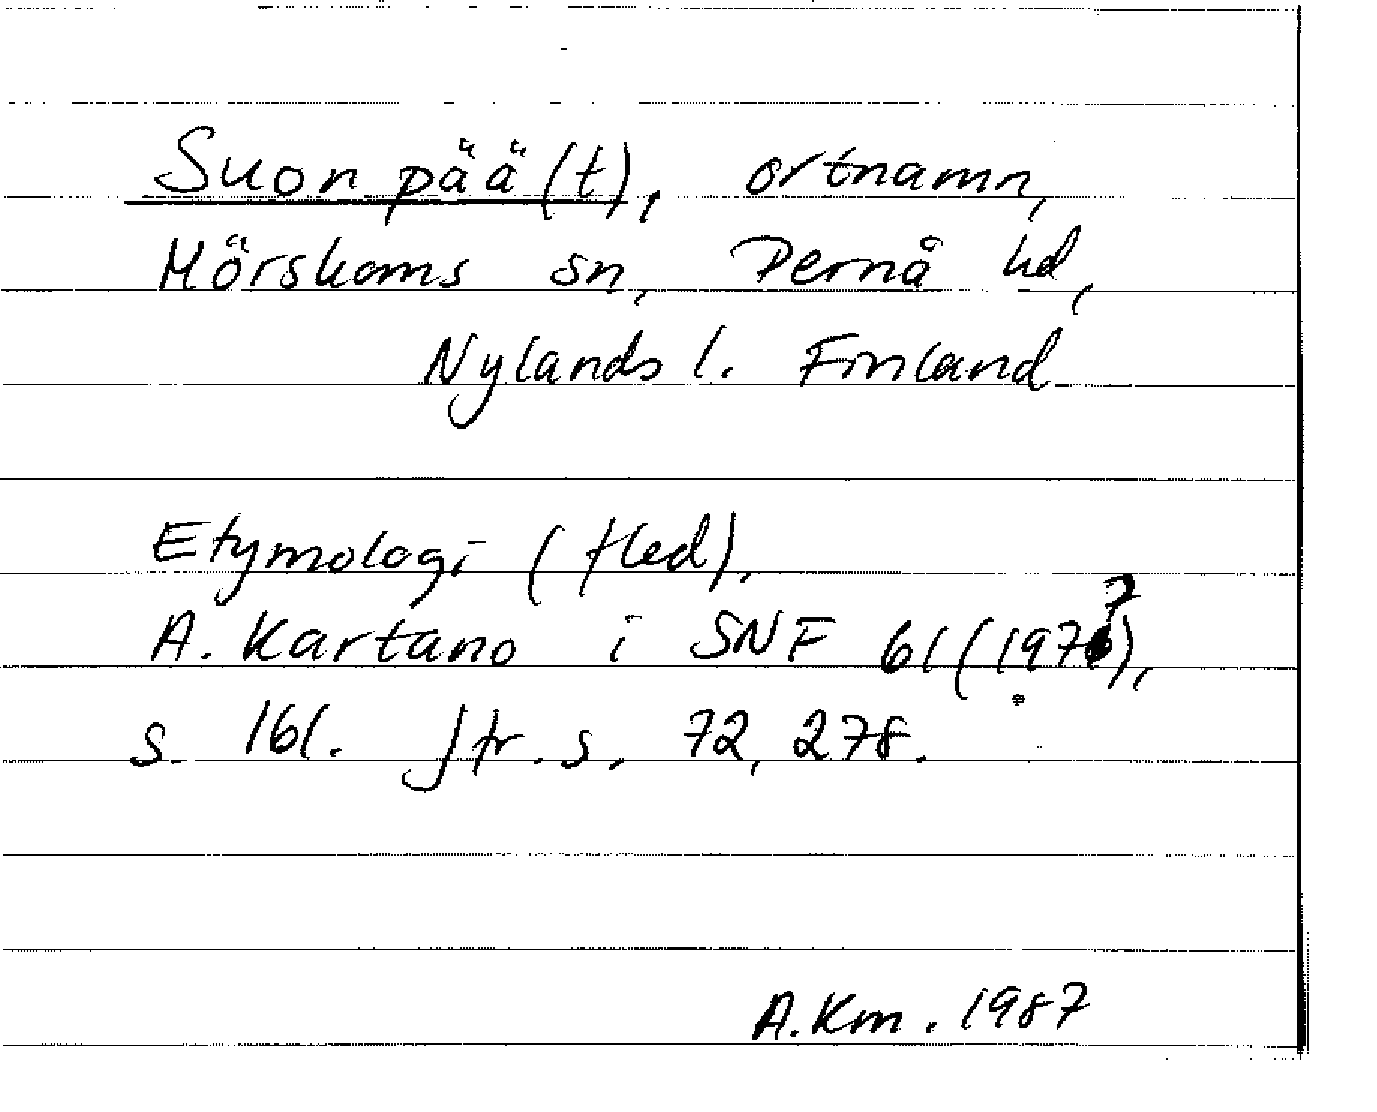 Suonpää(t), ortnamn,
Mörskoms sn, Pernå hd,
Nylands l. Finland
Etymologi (fled),
A. Kartano i SNF 61 (1977),
s. 161. Jfr. s. 72, 278.
A.Km. 1987